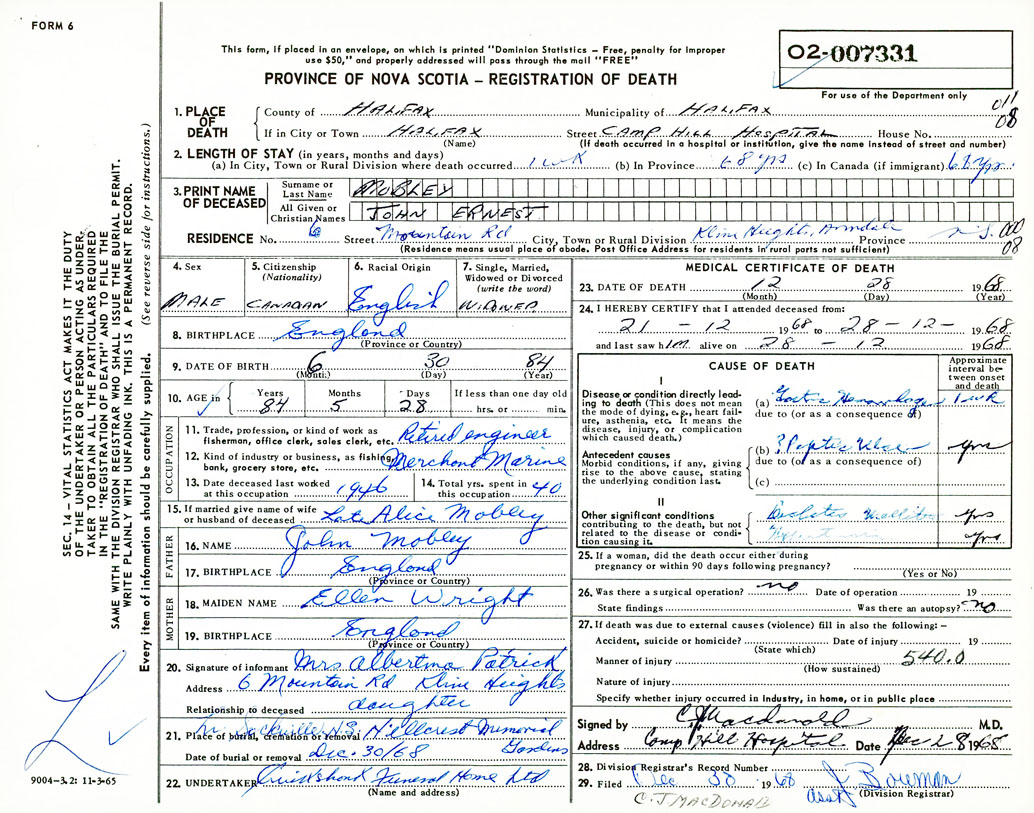 FORM 6
This form, if placed in an envelope, on which is printed "Dominion Statistics – Free, penalty for improper
use $50," and properly addressed will pass through the mail "FREE"
PROVINCE OF NOVA SCOTIA – REGISTRATION OF DEATH
02-007331
For use of the Department only
011
08
SEC. 14 – VITAL STATISTICS ACT MAKES IT THE DUTY
OF THE UNDERTAKER OR PERSON ACTING AS UNDER-
TAKER TO OBTAIN ALL THE PARTICULARS REQUIRED
IN THE "REGISTRATION OF DEATH" AND TO FILE THE
SAME WITH THE DIVISION REGISTRAR WHO SHALL ISSUE THE BURIAL PERMIT.
WRITE PLAINLY WITH UNFADING INK. THIS IS A PERMANENT RECORD.
Every item of information should be carefully supplied. (See reverse side for instructions.)
1. PLACE OF DEATH
County of HALIFAX Municipality of HALIFAX
If in City or Town HALIFAX Street CAMP HILL HOSPITAL House No.
(Name) (If death occurred in a hospital or institution, give the name instead of street and number)
2. LENGTH OF STAY (in years, months and days)
(a) In City, Town or Rural Division where death occurred 1 wk (b) In Province 68 yrs (c) In Canada (if immigrant) 68 yrs.
3. PRINT NAME OF DECEASED
Surname or Last Name MOBLEY
All Given or Christian Names JOHN ERNEST
RESIDENCE No. 6 Street Mountain Rd City, Town or Rural Division Kline Heights, Armdale Province N.S. 000
08
(Residence means usual place of abode. Post Office Address for residents in rural parts not sufficient)
4. Sex
MALE
5. Citizenship
(Nationality)
CANADIAN
6. Racial Origin
English
7. Single, Married,
Widowed or Divorced
(write the word)
WIDOWER
8. BIRTHPLACE England
(Province or Country)
9. DATE OF BIRTH 6 30 84
(Month) (Day) (Year)
10. AGE in
Years Months Days If less than one day old
84 5 28 hrs. or min.
OCCUPATION
11. Trade, profession, or kind of work as
fisherman, office clerk, sales clerk, etc. Retired engineer
12. Kind of industry or business, as fishing,
bank, grocery store, etc. Merchant Marine
13. Date deceased last worked
at this occupation 1946
14. Total yrs. spent in
this occupation 40
15. If married give name of wife
or husband of deceased Late Alice Mobley
FATHER
16. NAME John Mobley
17. BIRTHPLACE England
(Province or Country)
MOTHER
18. MAIDEN NAME Ellen Wright
19. BIRTHPLACE England
(Province or Country)
20. Signature of informant Mrs Albertina Patrick
Address 6 Mountain Rd Kline Heights
Relationship to deceased daughter
Sackville N.S. Hillcrest Memorial
21. Place of burial, cremation or removal Gardens
Date of burial or removal Dec. 30/68
22. UNDERTAKER Cruikshank Funeral Home Ltd
(Name and address)
9004-3.2: 11-3-65
MEDICAL CERTIFICATE OF DEATH
23. DATE OF DEATH 12 28 1968
(Month) (Day) (Year)
24. I HEREBY CERTIFY that I attended deceased from:
21 – 12 1968 to 28 – 12 – 1968
and last saw him alive on 28 – 12 1968
CAUSE OF DEATH
Approximate
interval be-
tween onset
and death
I
Disease or condition directly lead-
ing to death (This does not mean
the mode of dying, e.g., heart fail-
ure, asthenia, etc. It means the
disease, injury, or complication
which caused death.)
(a) Gastric Hemorrhage 1 wk
due to (or as a consequence of)
Antecedent causes
Morbid conditions, if any, giving
rise to the above cause, stating
the underlying condition last.
(b) ? Peptic Ulcer yrs
due to (or as a consequence of)
(c)
II
Other significant conditions
contributing to the death, but not
related to the disease or condi-
tion causing it.
Diabetes Mellitus yrs
yrs
25. If a woman, did the death occur either during
pregnancy or within 90 days following pregnancy?
(Yes or No)
26. Was there a surgical operation? no Date of operation 19
State findings Was there an autopsy? no
27. If death was due to external causes (violence) fill in also the following: –
Accident, suicide or homicide? Date of injury 19
(State which)
Manner of injury 540.0
(How sustained)
Nature of injury
Specify whether injury occurred in industry, in home, or in public place
Signed by C J Macdonald M.D.
Address Camp Hill Hospital Date Dec 28 1968
28. Division Registrar's Record Number
29. Filed Dec 30 1968 J Bowman
asst (Division Registrar)
C. J MACDONALD